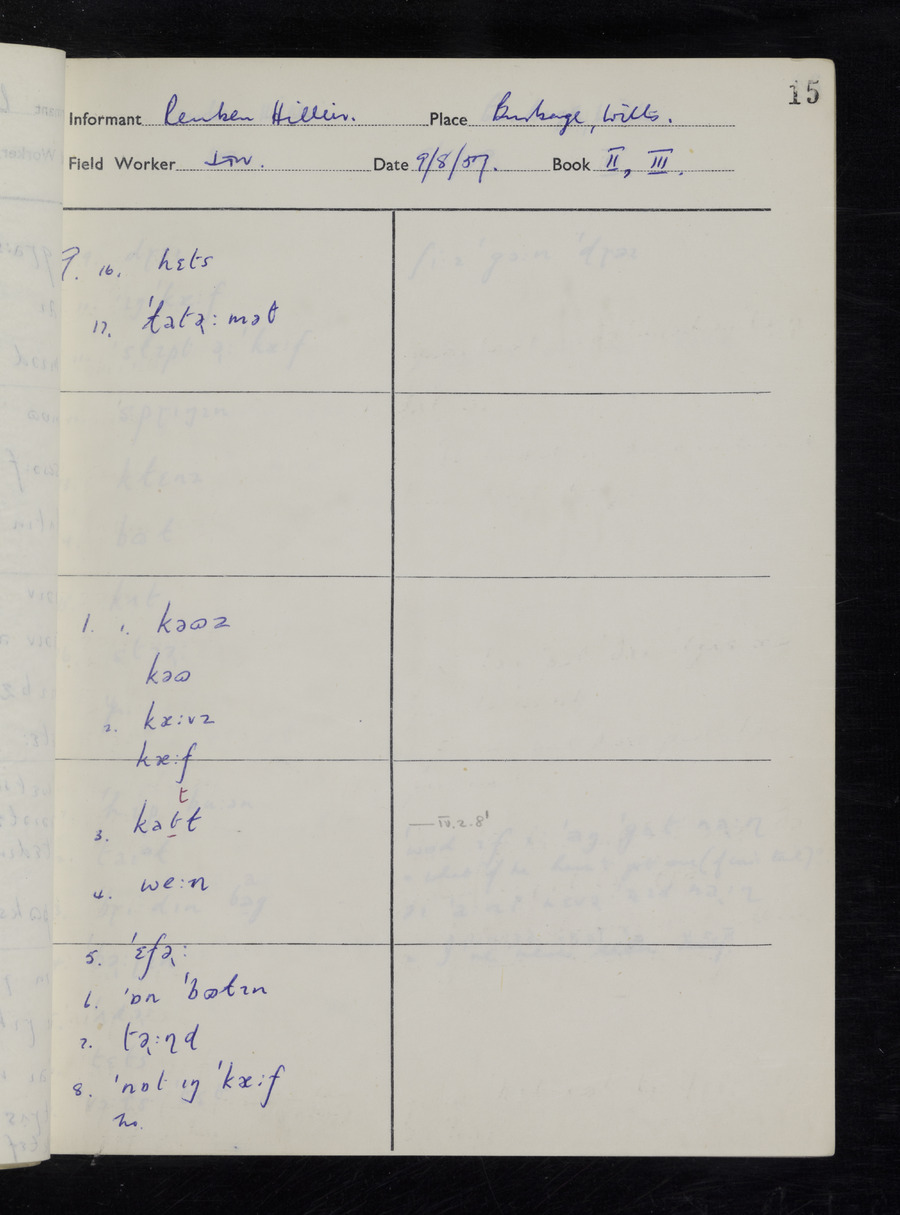 15
Informant Reuben Hillier. Place Burbage, Wilts.
Field Worker Date 9/8/57. Book II, III.
9. 16. hɛts
17. ˈtətəɽ: mət
1. 1. kəʊz
kəʊ
2. kæ:vz
kæ:f
t
3. katt — IV.2.8¹
4. we:n
5. ˈɛfəɽ:
6. ˈɒn ˈbætɪn
7. təɽ:ɳd
8. ˈnɒt ɪŋ ˈkæ:f